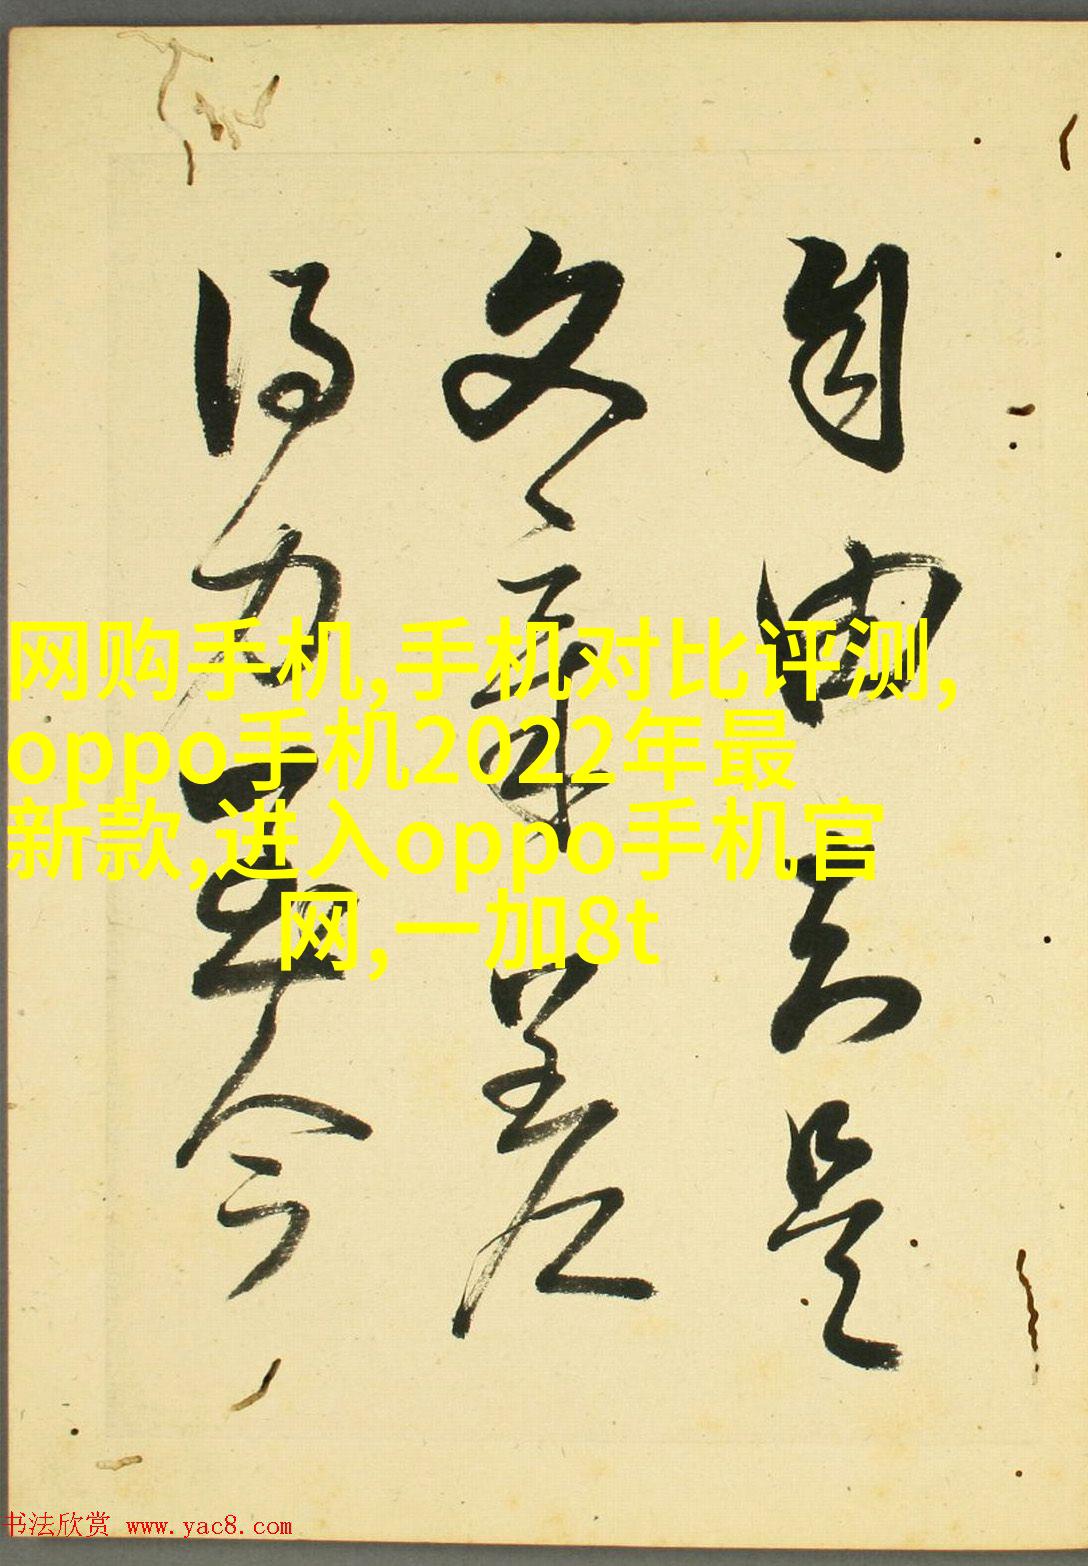 自由是
文章
得力今
网购手机,手机对比评测,
oppo手机2022年最
新款,进入oppo手机官
网,一加8t
书法欣赏 www.yac8.com